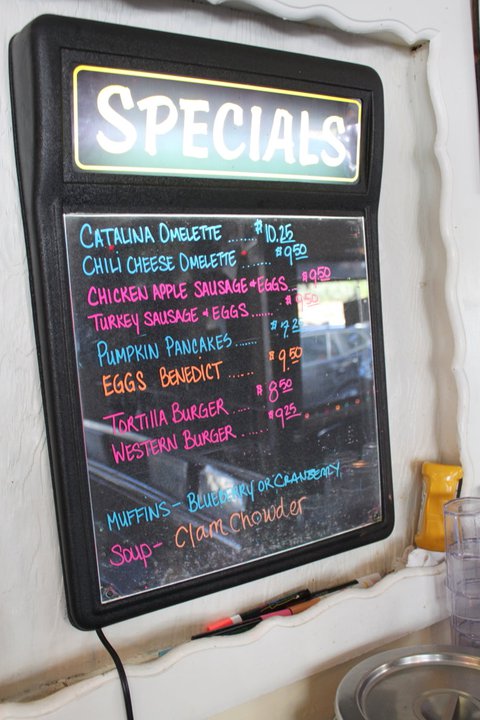 SPECIALS
CATALINA OMELETTE ....... $10.25
CHILI CHEESE OMELETTE ........ $9.50
CHICKEN APPLE SAUSAGE & EGGS... $9.50
TURKEY SAUSAGE & EGGS...... $9.50
PUMPKIN PANCAKES.....
EGGS BENEDICT ...... $9.50
TORTILLA BURGER .... $8.50
WESTERN BURGER ..... $9.25
MUFFINS- BLUEBERRY OR CRANBERRY
SOUP- Clam Chowder